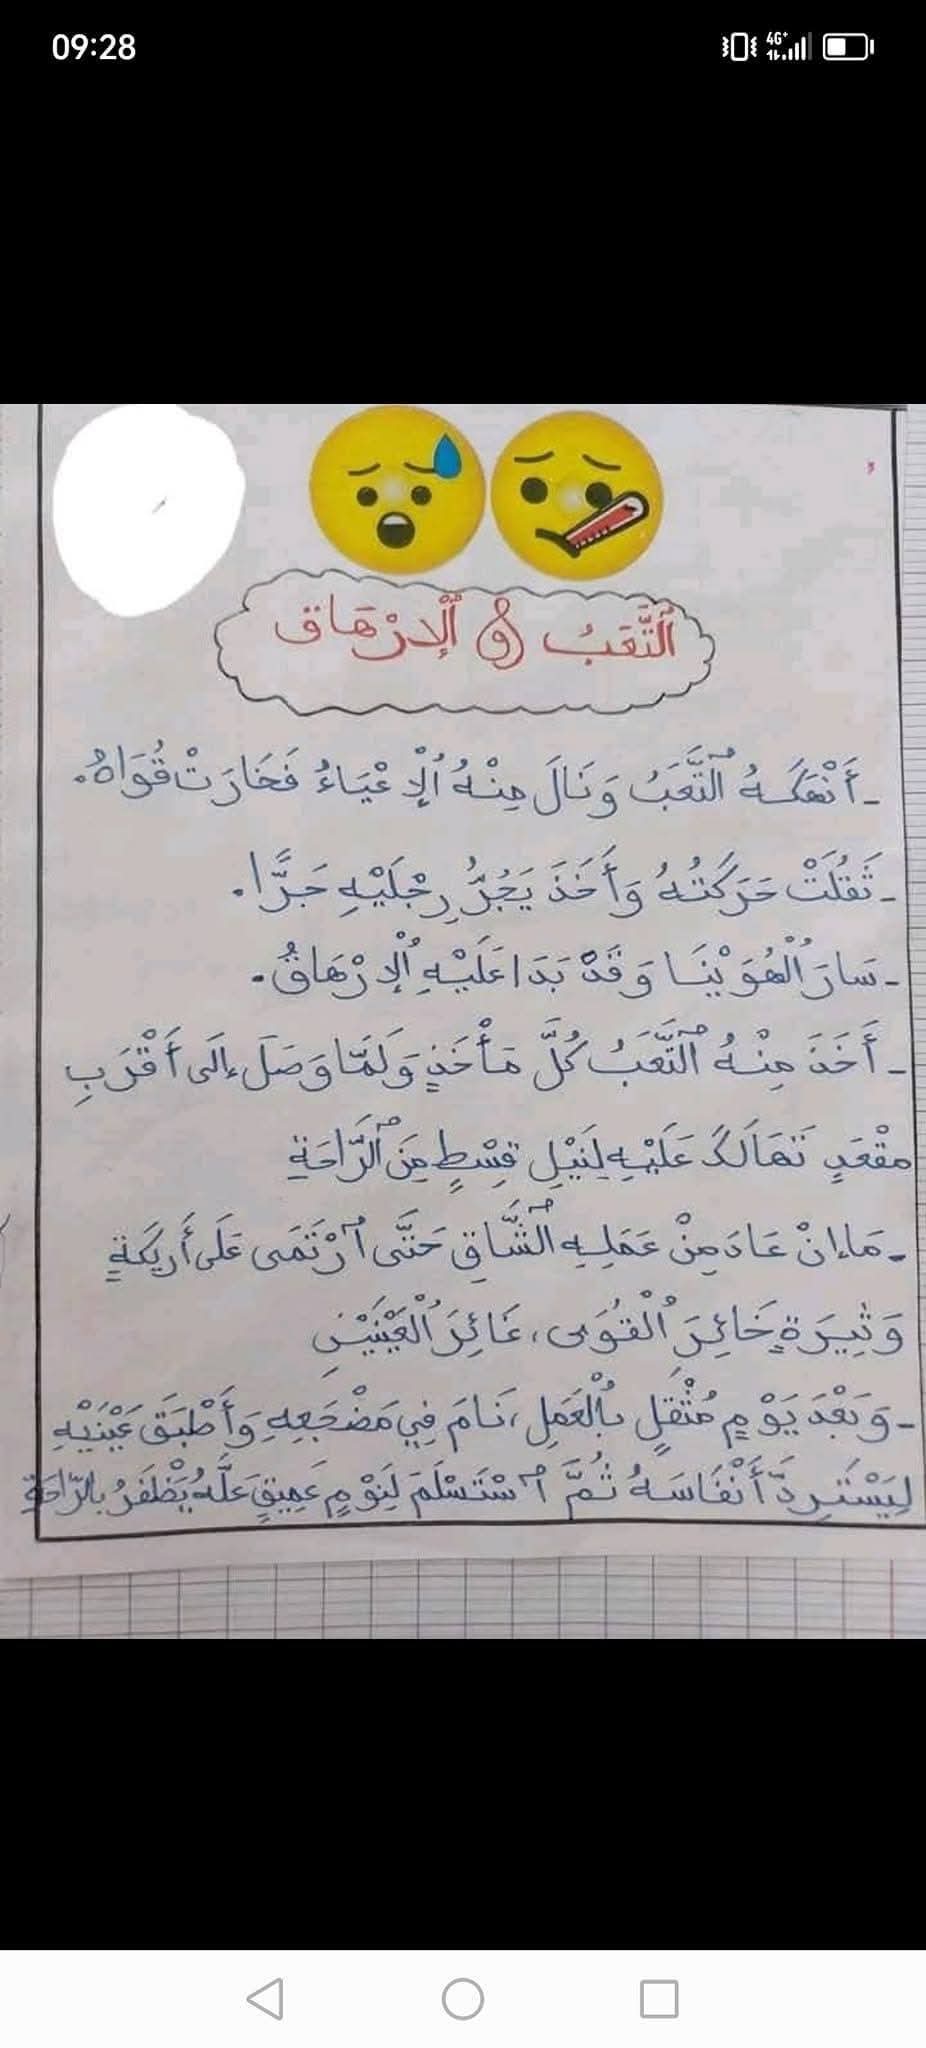 09:28
4G+
اَلتَّعَبُ وَ اَلْإِرْهَاق
- أَنْهَكَهُ اَلتَّعَبُ وَنَالَ مِنْهُ اُلْإِعْيَاءُ فَخَارَتْ قُوَاهُ.
- ثَقُلَتْ حَرَكَتُهُ وَأَخَذَ يَجُرُّ رِجْلَيْهِ جَرًّا.
- سَارَ اُلْهُوَيْنَا وَقَدْ بَدَا عَلَيْهِ اُلْإِرْهَاقُ.
- أَخَذَ مِنْهُ اَلتَّعَبُ كُلَّ مَأْخَذٍ وَلَمَّا وَصَلَ إِلَى أَقْرَبِ
مقْعَدٍ تَهَالَكَ عَلَيْهِ لِنَيْلِ قِسْطٍ مِنَ اَلرَّاحَةِ
- مَا إِنْ عَادَ مِنْ عَمَلِهِ اَلشَّاقِ حَتَّى اُرْتَمَى عَلَى أَرِيكَةٍ
وَثِيرَةٍ خَائِرَ اُلْقُوَى، غَائِرَ اُلْعَيْنَيْنِ
- وَبَعْدَ يَوْمٍ مُثْقَلٍ بِالْعَمَلِ، نَامَ فِي مَضْجَعِهِ وَأَطْبَقَ عَيْنَيْهِ
لِيَسْتَرِدَّ أَنْفَاسَهُ ثُمَّ اُسْتَسْلَمَ لِنَوْمٍ عَمِيقٍ عَلَّهُ يَظْفَرُ بالرَّاحَةِ